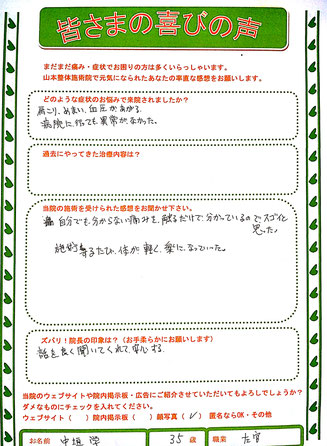 皆さまの喜びの声
まだまだ痛み・症状でお困りの方は多くいらっしゃいます。
山本整体施術院で元気になられたあなたの率直な感想をお願いします。
どのような症状のお悩みで来院されましたか?
肩こり、めまい、血圧があがる。
病院に行っても異常がなかった。
過去にやってきた治療内容は?
当院の施術を受けられた感想をお聞かせ下さい。
自分でも分からない痛みを、触るだけで、分かっているのでスゴイと
思った。
施術するたび、体が軽く、楽になっていった。
ズバリ!院長の印象は?(お手柔らかにお願いします)
話を良く聞いてくれて安心する
当院のウェブサイトや院内掲示板・広告にご紹介させていただいてもよろしでしょうか?
ダメなものにチェックを入れてください。
ウェブサイト( )院内掲示板( )顔写真(✓)匿名ならOK・その他
お名前 中垣 学 35歳 職業 左官